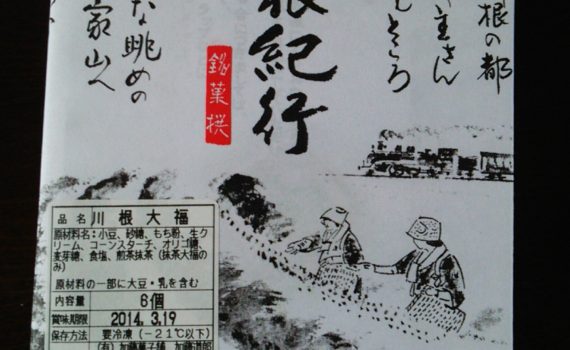 根の都
主さん
もところ
根紀行
銘菓撰
な眺めの
家山へ
品名 川根大福
原材料名：小豆、砂糖、もち粉、生ク
リーム、コーンスターチ、オリゴ糖、
麦芽糖、食塩、煎茶抹茶（抹茶大福の
み）
原材料の一部に大豆・乳を含む
内容量 6個
賞味期限 2014. 3.19
保存方法 要冷凍（－21℃以下）
(有) 加藤菓子舗 加藤